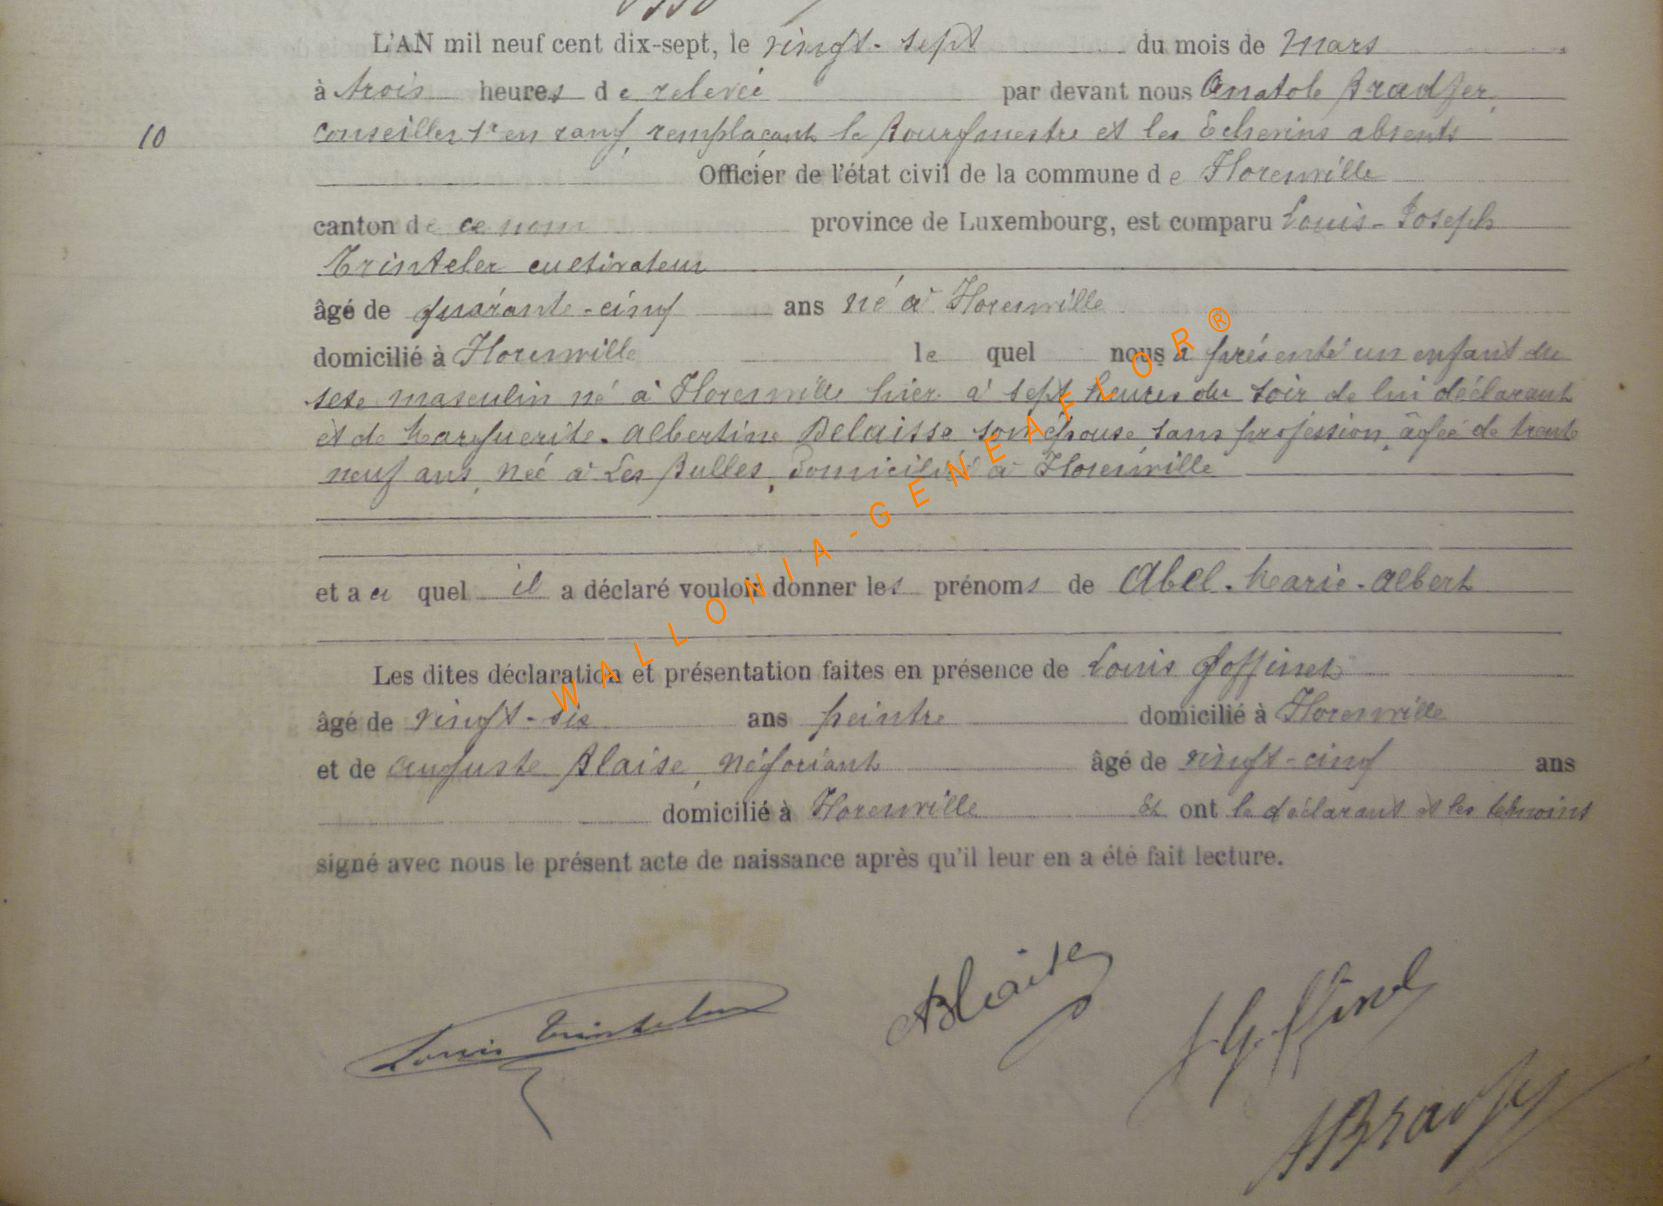 L'AN mil neuf cent dix-sept, le vingt-sept du mois de mars
à trois heures de relevée par devant nous Anatole Bradfer,
10 conseiller 1r en rang, remplaçant le Bourgmestre et les Echevins absents
Officier de l'état civil de la commune de Florenville
canton de ce nom province de Luxembourg, est comparu Louis-Joseph
Trinteler cultivateur
âgé de quarante-cinq ans né à Florenville
domicilié à Florenville lequel nous a présenté un enfant du
sexe masculin né à Florenville hier à sept heures du soir de lui déclarant
et de Marguerite-Albertine Delaisse son épouse sans profession, âgée de trente
neuf ans, née à Les Bulles, domiciliée à Florenville
et a quel il a déclaré vouloir donner les prénoms de Abel-Marie-Albert
Les dites déclaration et présentation faites en présence de Louis Goffinet
âgé de vingt-six ans peintre domicilié à Florenville
et de Auguste Blaise, négociant âgé de vingt-cinq ans
domicilié à Florenville Et ont le déclarant et les témoins
signé avec nous le présent acte de naissance après qu'il leur en a été fait lecture.
WALLONIA-GENEAFLOR®
Louis Trinteler ABlaise L. Goffinet
ABradfer